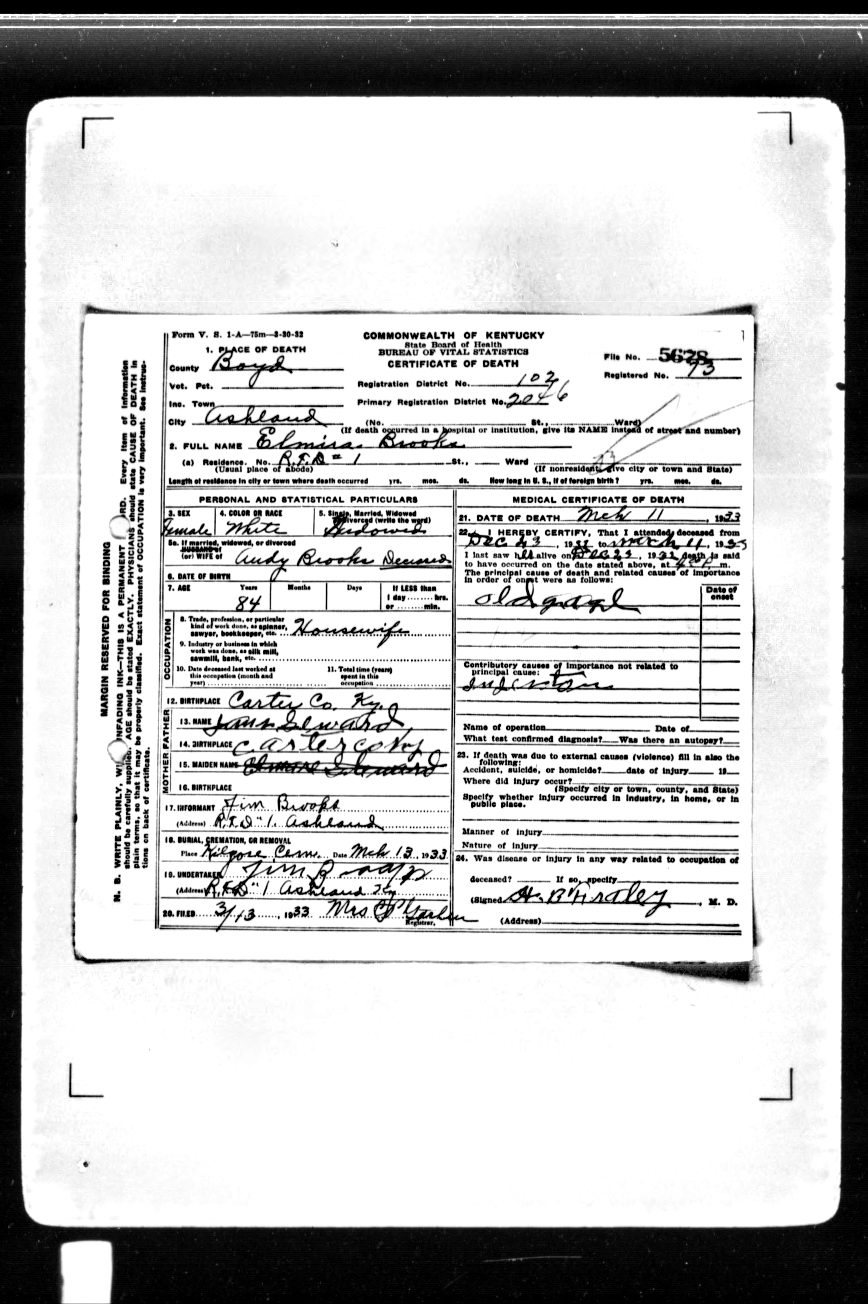 Form V. S. 1-A—75m—3-30-32
COMMONWEALTH OF KENTUCKY
State Board of Health
BUREAU OF VITAL STATISTICS
CERTIFICATE OF DEATH
File No. 5628
Registered No. 73
1. PLACE OF DEATH
County Boyd
Vot. Pct.
Registration District No. 102
Inc. Town
Primary Registration District No. 2046
City Ashland (No. St., Ward)
(If death occurred in a hospital or institution, give its NAME instead of street and number)
2. FULL NAME Elmira Brooks
(a) Residence. No. R.F.D # 1 St., Ward
(Usual place of abode) (If nonresident, give city or town and State)
Length of residence in city or town where death occurred yrs. mos. ds. How long in U. S., if of foreign birth? yrs. mos. ds.
PERSONAL AND STATISTICAL PARTICULARS
3. SEX 4. COLOR OR RACE 5. Single, Married, Widowed
or Divorced (write the word)
Female White Widowed
5a. If married, widowed, or divorced
HUSBAND of
(or) WIFE of Andy Brooks Deceased
6. DATE OF BIRTH
7. AGE Years Months Days If LESS than
1 day hrs.
84 or min.
OCCUPATION
8. Trade, profession, or particular
kind of work done, as spinner,
sawyer, bookkeeper, etc. Housewife
9. Industry or business in which
work was done, as silk mill,
sawmill, bank, etc.
10. Date deceased last worked at
this occupation (month and
year)
11. Total time (years)
spent in this
occupation
12. BIRTHPLACE Carter Co. Ky.
FATHER
13. NAME
14. BIRTHPLACE Carter Co Ky
MOTHER
15. MAIDEN NAME
16. BIRTHPLACE
17. INFORMANT Jim Brooks
(Address) R.F.D "1. Ashland
18. BURIAL, CREMATION, OR REMOVAL
Place Kilgore Cem. Date Mch 13 1933
19. UNDERTAKER Jim
(Address) R.F.D "1 Ashland Ky
20. FILED 3/13, 1933 Mrs
Registrar.
MEDICAL CERTIFICATE OF DEATH
21. DATE OF DEATH Mch 11, 1933
22. I HEREBY CERTIFY, That I attended deceased from
Dec 23, 1932 to March 11, 1933
I last saw h alive on Dec 23, 1932 death is said
to have occurred on the date stated above, at m.
The principal cause of death and related causes of importance
in order of onset were as follows:
Date of
onset
old age
Contributory causes of importance not related to
principal cause:
Name of operation Date of
What test confirmed diagnosis? Was there an autopsy?
23. If death was due to external causes (violence) fill in also the
following:
Accident, suicide, or homicide? date of injury 19
Where did injury occur?
(Specify city or town, county, and State)
Specify whether injury occurred in industry, in home, or in
public place.
Manner of injury
Nature of injury
24. Was disease or injury in any way related to occupation of
deceased? If so, specify
(Signed) H. B. Fraley, M. D.
(Address)
MARGIN RESERVED FOR BINDING
N. B. WRITE PLAINLY, UNFADING INK—THIS IS A PERMANENT Every item of information
should be carefully supplied. AGE should be stated EXACTLY. PHYSICIANS should state CAUSE OF DEATH in
plain terms, so that it may be properly classified. Exact statement of OCCUPATION is very important. See instruc-
tions on back of certificate.